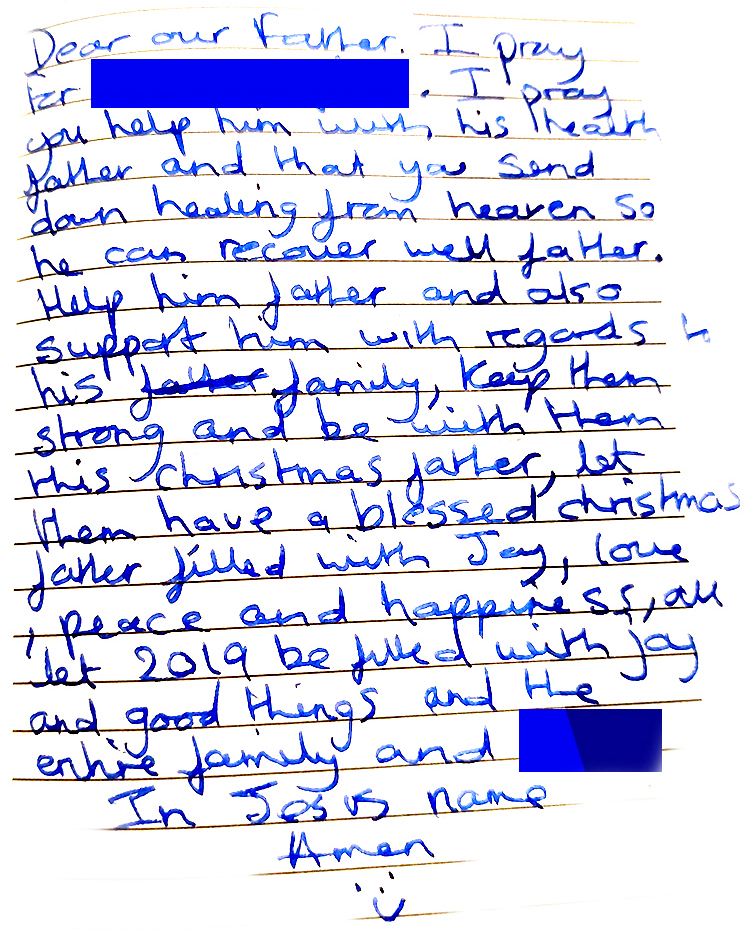 Dear our Father. I pray
for . I pray
you help him with his health
father and that you send
down healing from heaven so
he can recover well father.
Help him father and also
support him with regards to
his father family, keep them
strong and be with them
this christmas father, let
them have a blessed christmas
father filled with Joy, love
, peace and happiness, all
let 2019 be filled with joy
and good things and the
entire family and
In Jesus name
Amen